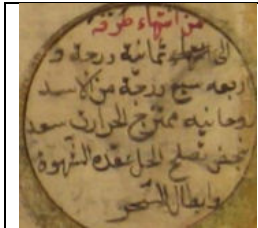 من انتهاء طرفه
الى انتهاء ثمانية درجة و
اربعه سبع درجة من الاسد
روحانيه ممتزج الحرارت سعد
نحس تصلح لحل عقده الشهوة
وابطال السحر